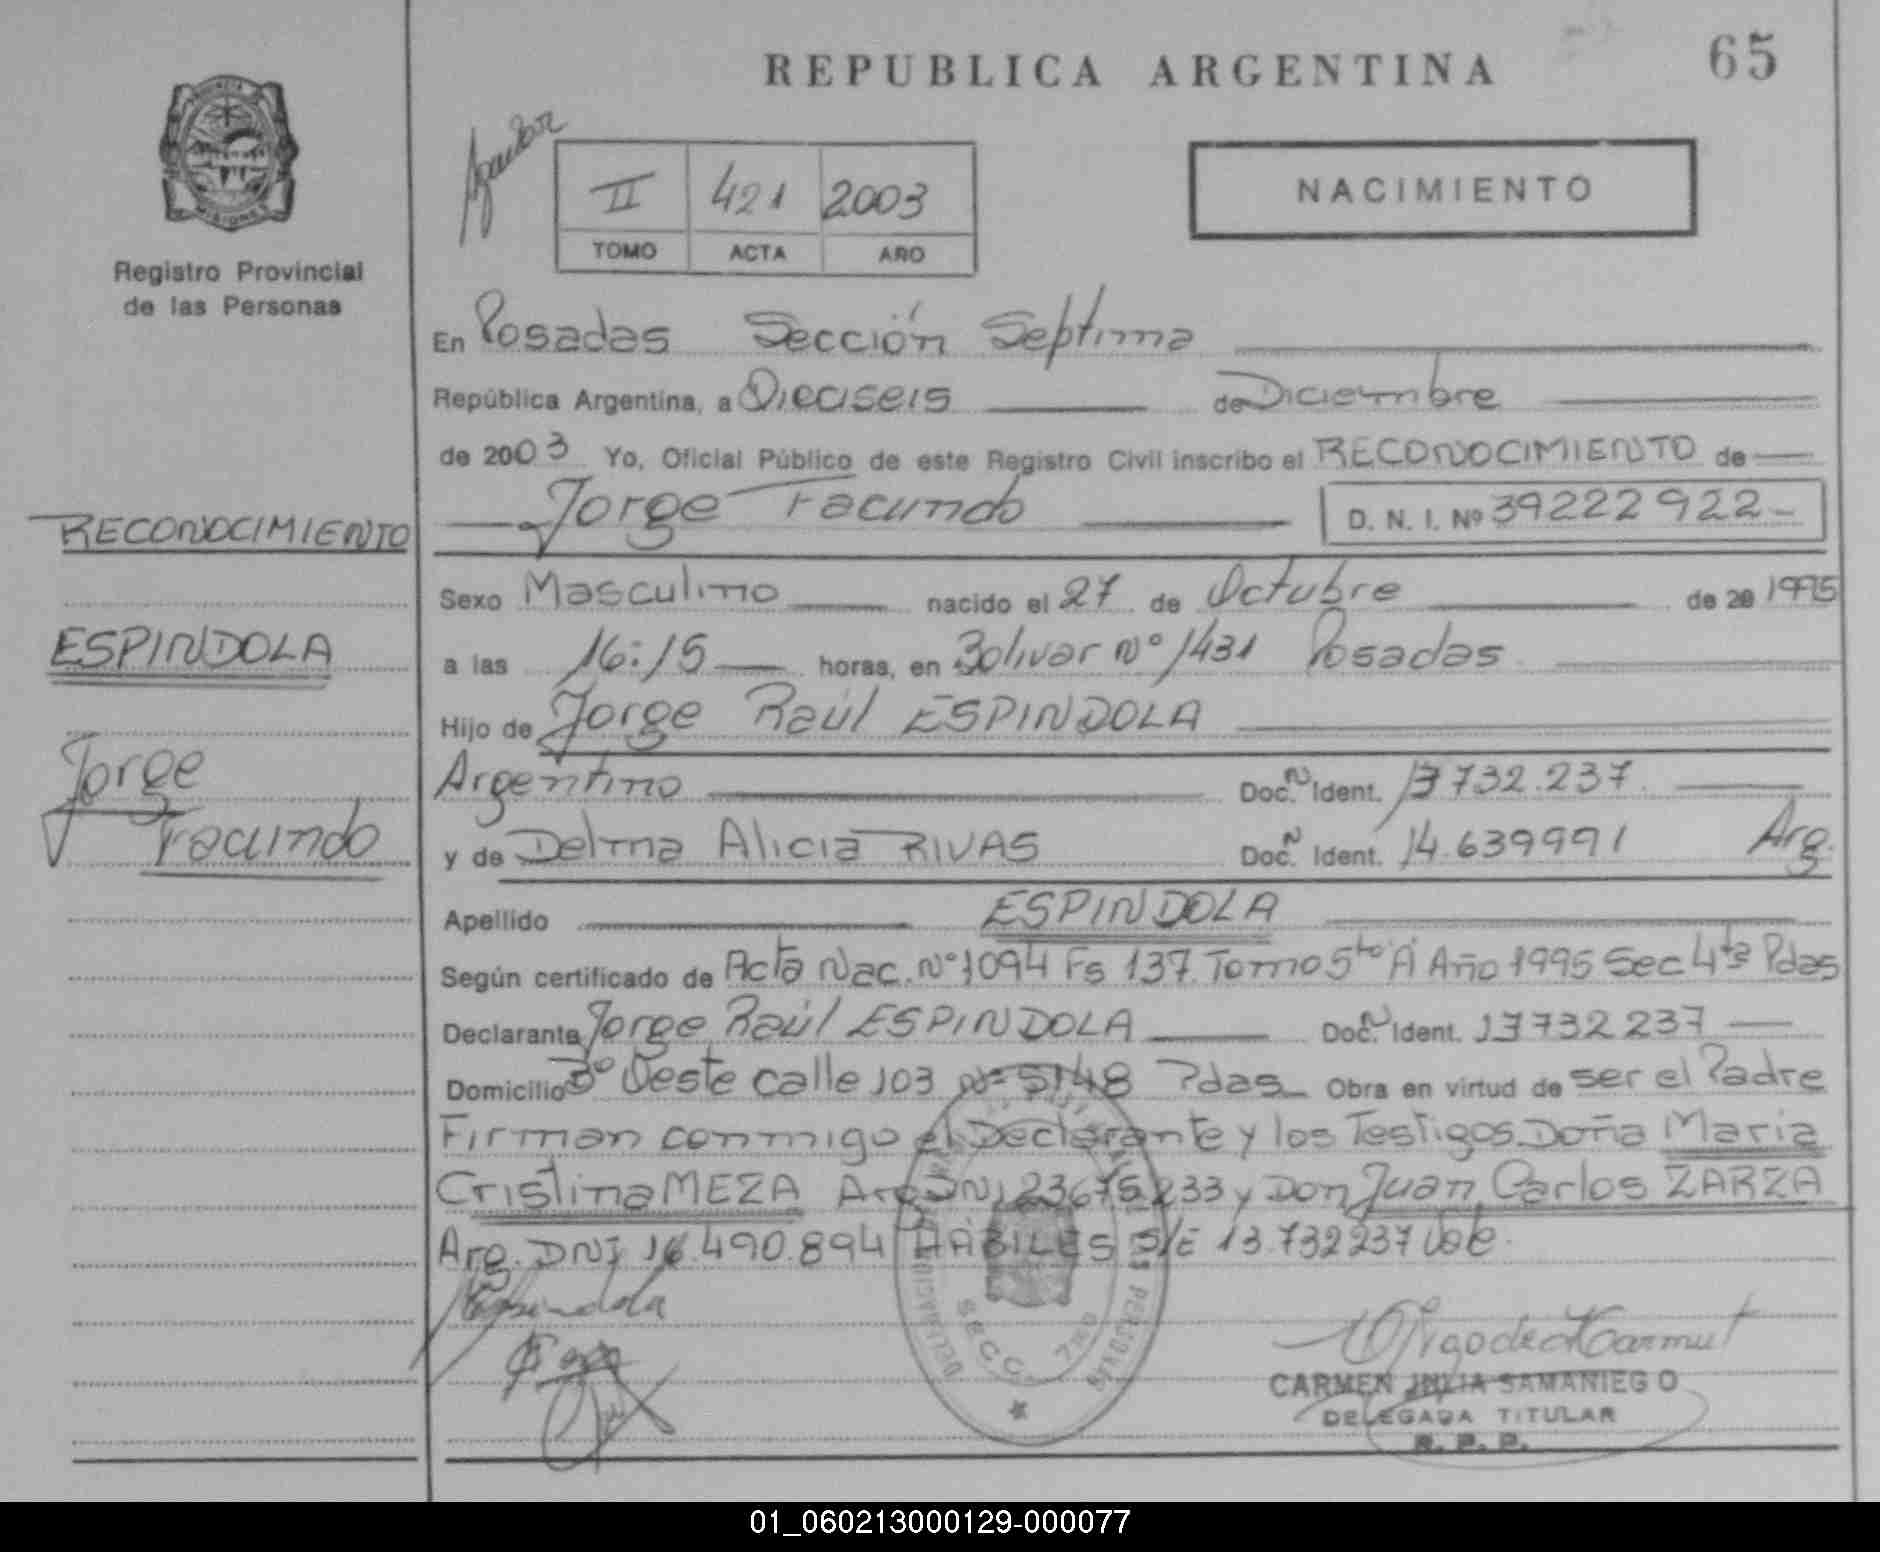 REPUBLICA ARGENTINA
65
II 421 2003
TOMO ACTA AÑO
NACIMIENTO
Registro Provincial
de las Personas
MISIONES
En Posadas Sección Septima
República Argentina, a Dieciseis de Diciembre
de 2003 Yo, Oficial Público de este Registro Civil inscribo el RECONOCIMIENTO de
Jorge Facundo D. N. I. Nº 39222922
RECONOCIMIENTO
Sexo Masculino nacido el 27 de Octubre de 20 1995
ESPINDOLA
a las 16:15 horas, en Bolivar Nº 1431 Posadas
Hijo de Jorge Raúl ESPINDOLA
Jorge
Facundo
Argentino Doc. N Ident. 13732.237.
y de Delma Alicia RIVAS Doc. N Ident. 14.639991 Arg.
Apellido ESPINDOLA
Según certificado de Acta Nac. Nº 1094 Fs 137. Tomo 5to A Año 1995 Sec 4ta Pdas
Declarante Jorge Raúl ESPINDOLA Doc. N Ident. 13732237
Domicilio Bº Oeste calle 103 Nº 5148 Pdas Obra en virtud de ser el Padre
Firman conmigo el Declarante y los Testigos Doña Maria
Cristina MEZA Arg DNI 23675233 y Don Juan Carlos ZARZA
Arg. DNI 16.490.894 HABILES S/E 13.732237 Vale.
SECC. 7MA
CARMEN JULIA SAMANIEGO
DELEGADA TITULAR
R. P. P.
01_060213000129-000077